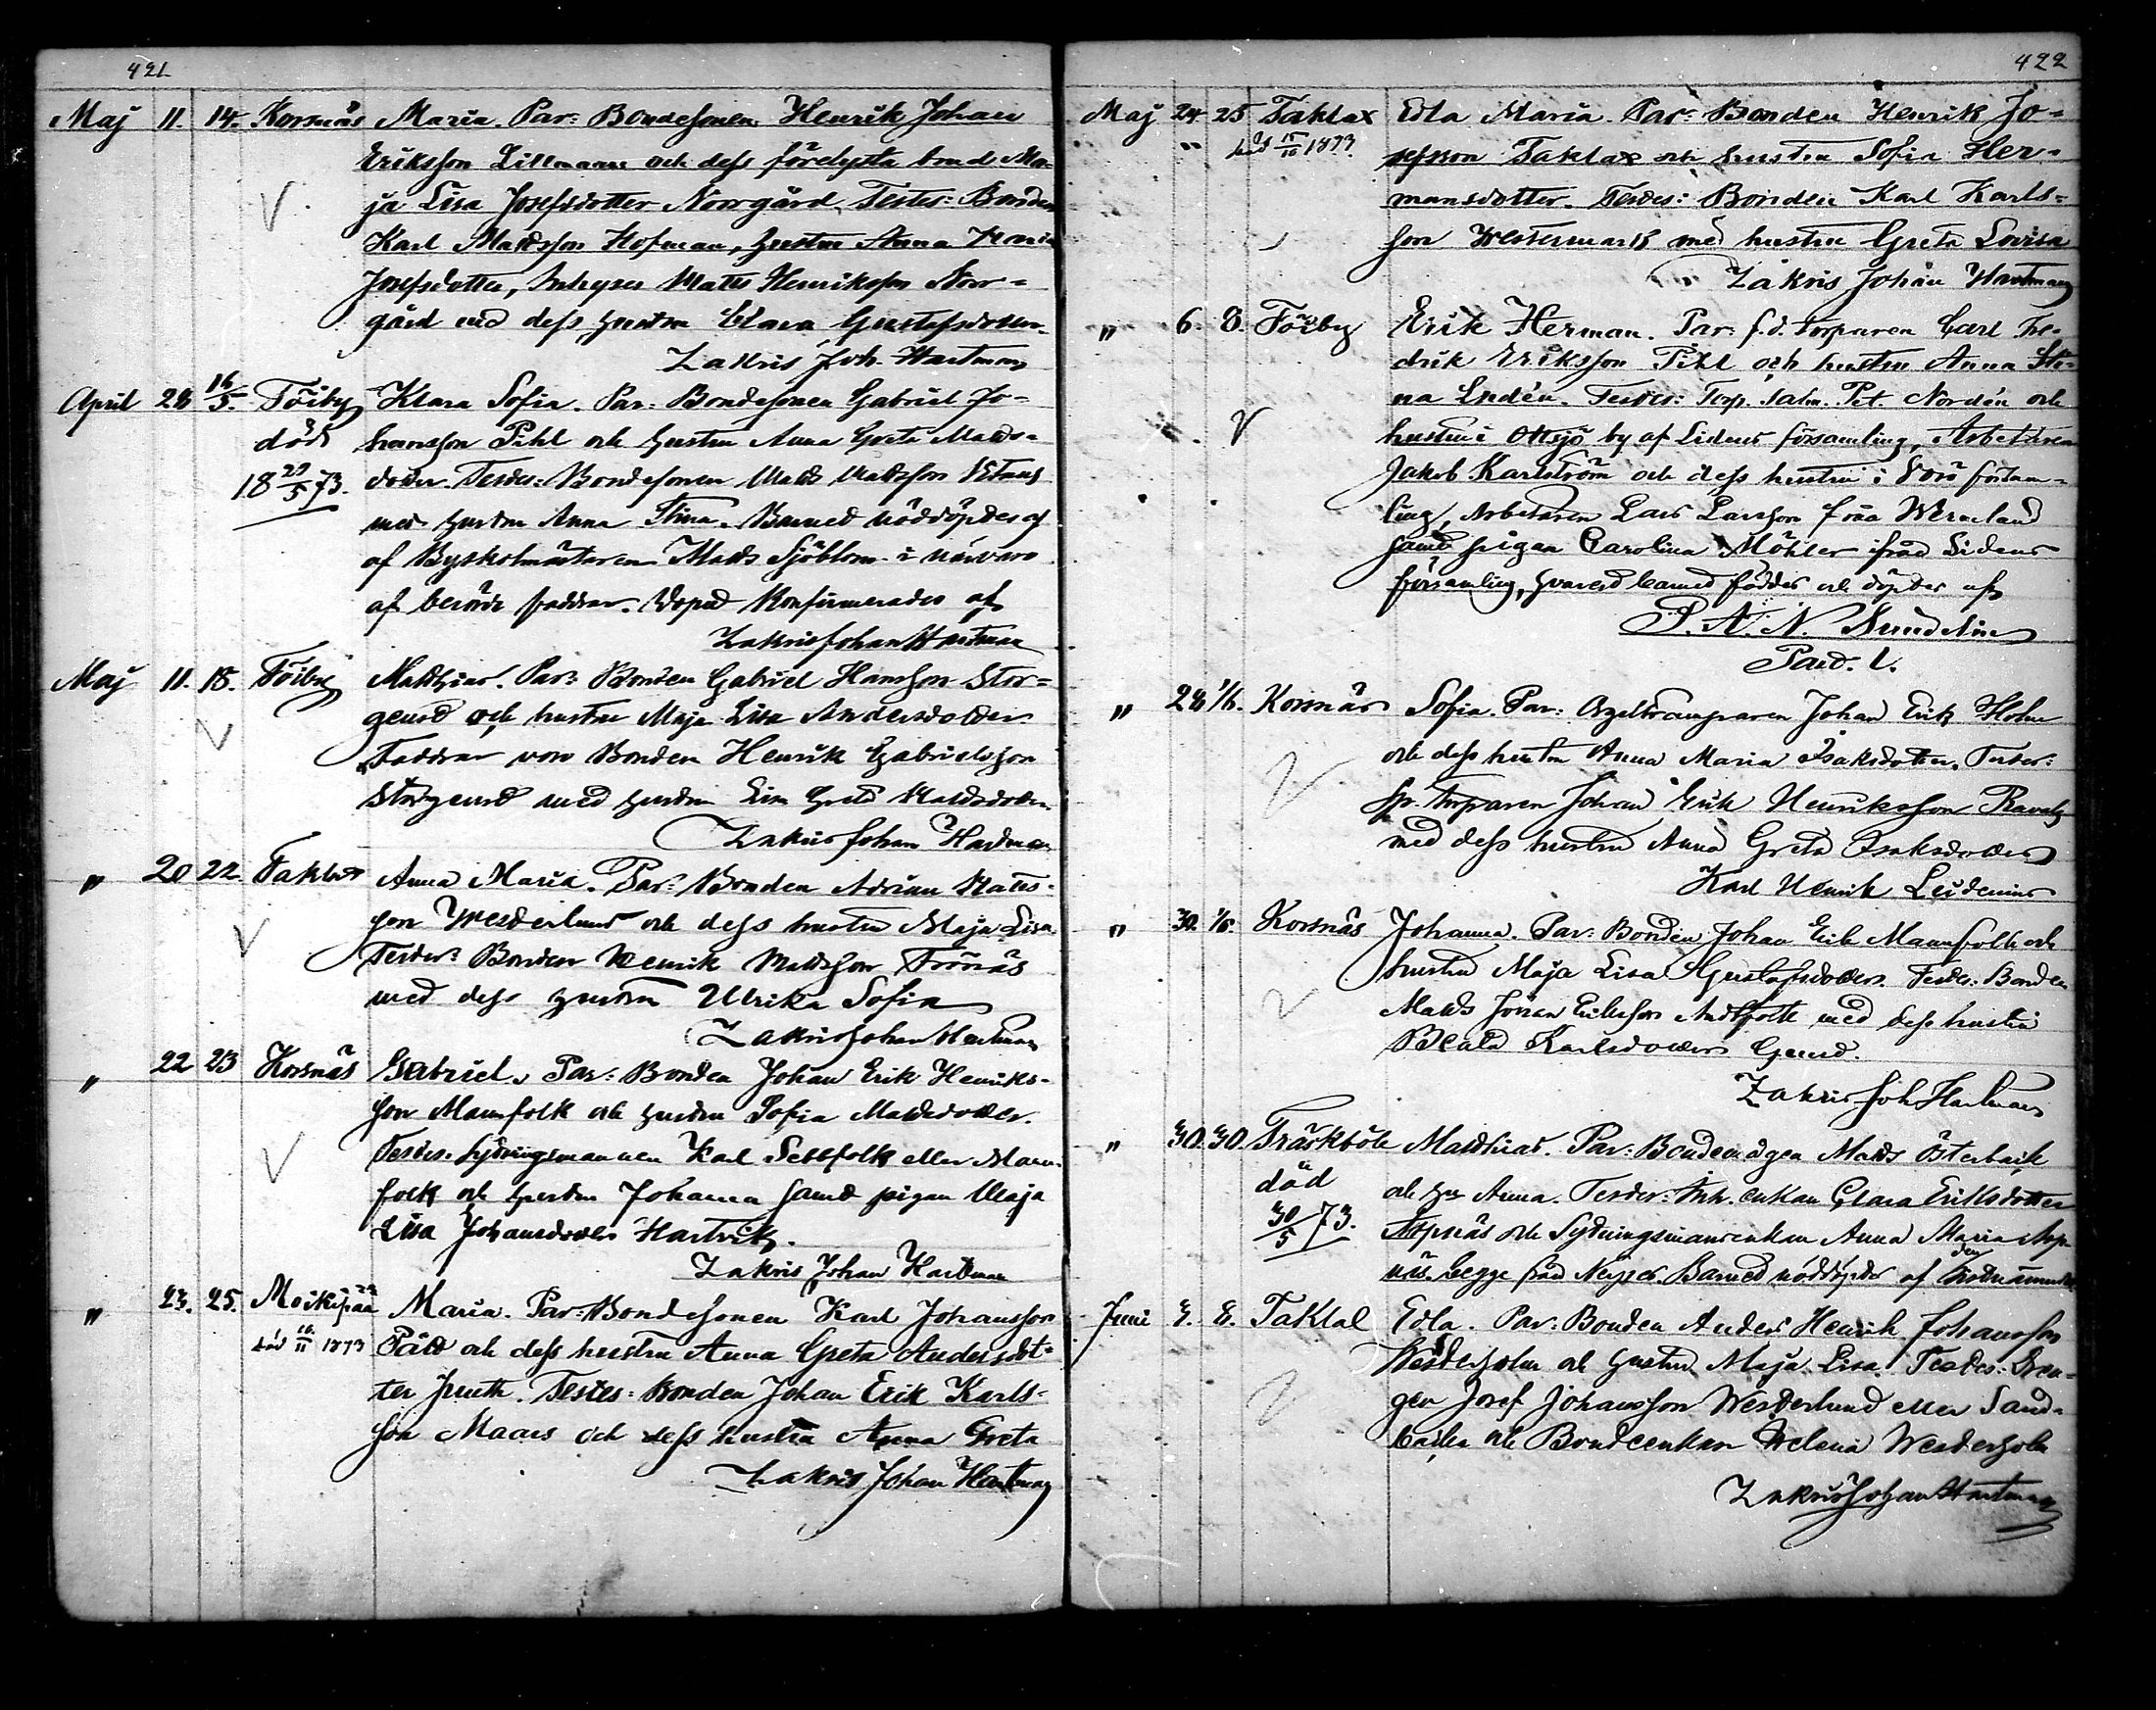 421
Maj 11. 14. Korsnäs Maria. Par: Bondesonen Henrik Johan
Eriksson Lillmanns och dess förelysta brud Ma-
ja Lisa Josefsdotter Norrgård. Testes: Bonden
Karl Mattsson Hofman, hustru Anna Maria
Josefsdotter, Inhyses Matts Henriksson Norr-
gård med dess hustru Clara Gustafsdotter.
Zakris Joh. Hartman
April 28 16/5. Töjby Klara Sofia. Par: Bondesonen Gabriel Jo-
död hansson Pihl och hustru Anna Greta Matts-
18 29/5 73. dotter. Testes: Bondesonen Matts Mattsson
med hustru Anna Stina. Barnet nöddöptes af
af Byskolmästaren Matts Sjöblom i närvaro
af berörde faddrar. Dopet konfirmerades af
Zakris Johan Hartman
Maj 11. 18. Töjby Matthias. Par: Bonden Gabriel Hansson Stor-
gerd och hustru Maja Lisa Andersdotter
Faddrar voro Bonden Henrik Gabrielsson
Storgerd med hustru Lisa Greta Mattsdotter.
Zakris Johan Hartman
" 20 22. Taklax Anna Maria. Par: Bonden Adrian Matts-
son Westerlund och dess hustru Maja Lisa.
Testes: Bonden Henrik Mattsson Trönäs
med dess hustru Ulrika Sofia
Zakris Johan Hartman
" 22 23 Korsnäs Gabriel. Par: Bonden Johan Erik Henriks-
son Mannfolk och hustru Sofia Mattsdotter.
Testes: Sytningsmannen Karl Sebbfolk eller Mann-
folk och hustru Johanna samt pigan Maja
Lisa Johansdotter Hartvik.
Zakris Johan Hartman
" 23. 25. Moikipää Maria. Par: Bondesonen Karl Johansson
död 10/11 1873 Pått och dess hustru Anna Greta Andersdot-
ter Juuth. Testes: Bonden Johan Erik Karls-
son Maars och dess hustru Anna Greta
Zakris Johan Hartman
422
Maj 24 25 Taklax Edla Maria. Par: Bonden Henrik Jo-
" död 15/10 1873. sefsson Taklax och hustru Sofia Her-
mansdotter. Testes: Bonden Karl Karls-
son Westermark med hustru Greta Lovisa
Zakris Johan Hartman
" 6. 8. Töjby Erik Herman. Par: f.d. Torparen Carl Fre-
drik Eriksson Pihl och hustru Anna Sti-
na Lindén. Testes: Torp. Pet. Nordén och
hustru i Ottsjö by af Lidens församling, Arbetaren
Jakob Karlström och dess hustru i församl-
ling, Arbetaren Lars Larsson från Wermland
samt pigan Carolina Möhler ifrån Lidens
församling, hvarest barnet föddes och döptes af
P. A. N. Sundelin
Past. l.
" 28 1/6. Korsnäs Sofia. Par: Johan Erik Holm
och dess hustru Anna Maria Isaksdotter. Testes:
Sp. torparen Johan Erik Henriksson
med dess hustru Anna Greta Isaksdotter
Karl Henrik Leidenius
" 30. 1/6. Korsnäs Johanna. Par: Bonden Johan Erik Mannfolk och
hustru Maja Lisa Gustafsdotter. Testes: Bonden
Matts Johan Eriksson Andfolk med dess hustru
Beata Karlsdotter Gerd.
Zakris Joh Hartman
" 30. 30. Träskböle Matthias. Par: Bondemågen Matts Österback
död och hu Anna. Testes: Inh. enkan Clara Eriksdotter
30/5 73. Aspnäs och Sytningsmansenkan Anna Maria Asp-
näs begge från Nerpes. Barnet nöddöptes af den sistnämnda
Juni 7. 8. Taklax Edla. Par: Bonden Anders Henrik Johansson
Westerholm och hustru Maja Lisa. Testes: Dren-
gen Josef Johansson Westerlund eller Sand-
backa och Bondeenkan Helena Westerholm
Zakris Johan Hartman